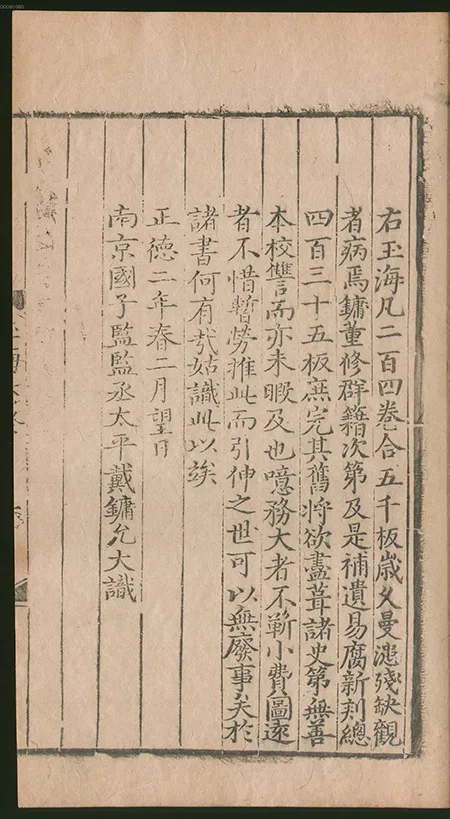 右玉海凡二百四卷合五千板歲乆曼漶殘缺觀
者病焉鏞董修群籍次第及是補遺易腐新刻總
四百三十五板庶完其舊將欲盡葺諸史第無善
本校讐而亦未暇及也噫務大者不靳小費圖遠
者不惜暫勞推此而引伸之世可以無廢事矣於
諸書何有哉姑識此以竢
正德二年春二月望日
南京國子監監丞太平戴鏞允大識